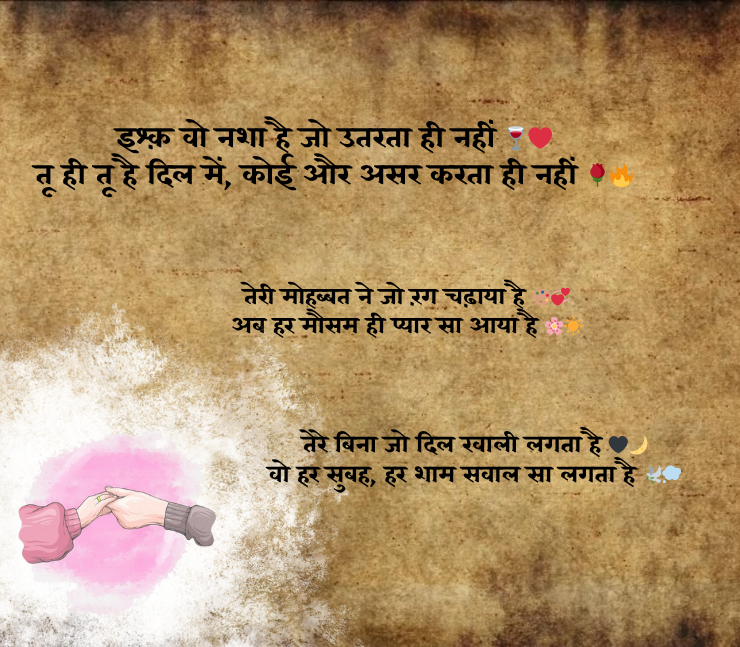 इश्क़ वो नशा है जो उतरता ही नहीं 🍷❤️
तू ही तू है दिल में, कोई और असर करता ही नहीं 🌹🔥
तेरी मोहब्बत ने जो रंग चढ़ाया है 🎨💞
अब हर मौसम ही प्यार सा आया है 🌸☀️
तेरे बिना जो दिल खाली लगता है 🖤🌙
वो हर सुबह, हर शाम सवाल सा लगता है 🕊️💭